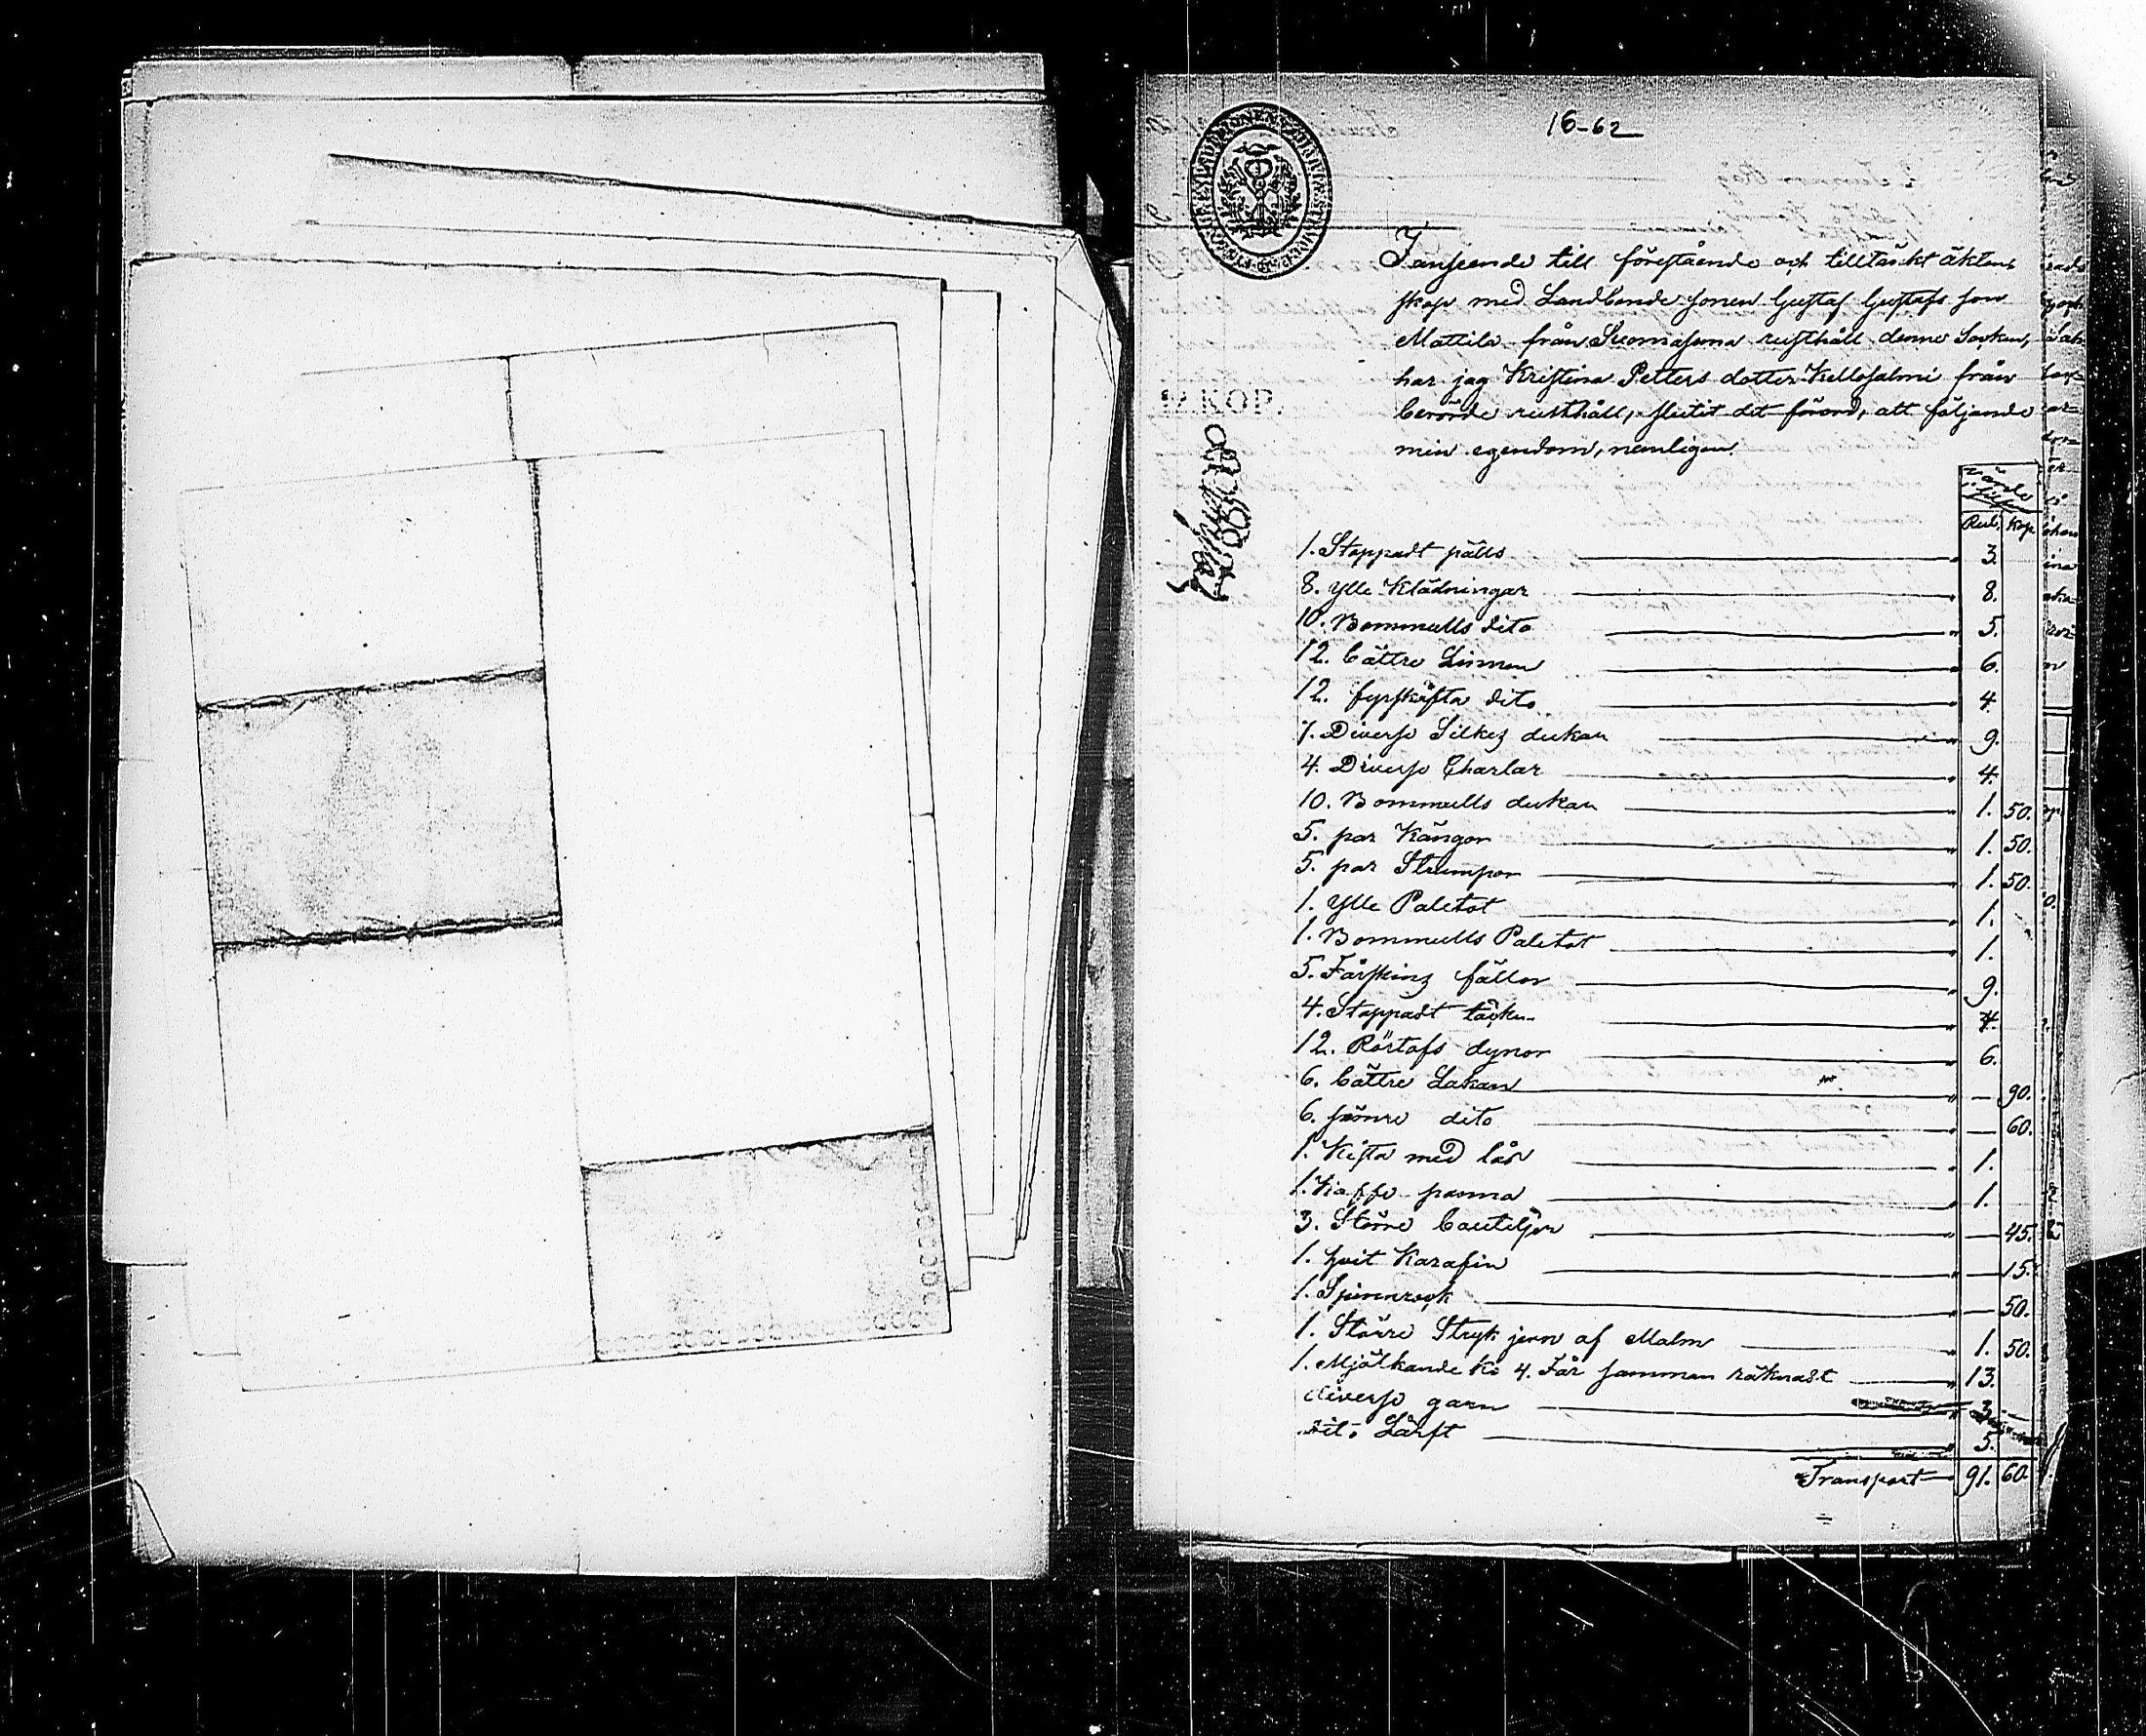 16-62
I anseende till förestående och tilltänkt äkten-
skap med Landbonde sonen Gustaf Gustafs son
Mattila från Suomasema rusthåll denne Socken,
har jag Kristina Petters dotter Kellosalmi från
berörde rusthåll, slutit det förord, att följande
min egendom, nemligen.
12. KOP.
Rub. Kop.
1. Stoppadt pälls 3.
8. Ylle Klädningar 8.
10. Bommulls dito 5.
12. bättre Linnen 6.
12. fyrskäfta dito 4.
7. Diverse Silkes dukar 9.
4. Diverse Charlar 4.
10. Bommulls dukar 1. 50.
5. par Kängor 1. 50.
5. par Strumpor 1. 50.
1. Ylle Paletot 1.
1. Bommulls Paletot 1.
5. Fårskins fällar 9.
4. Stoppadt täcken 4.
12. dynor 6.
6. bättre Lakan — 90.
6. sämre dito — 60.
1. Kista med lås 1.
1. Kaffe panna 1.
3. Större bouteljer — 45.
1. hvit Karafin — 15.
1. Spinnrock — 50.
1. Större Strykjern af Malm 1. 50.
1. Mjölkande Ko 4. Får samman räknadt 13.
diverse garn 3.
dito Lärft 5.
Transport 91. 60.